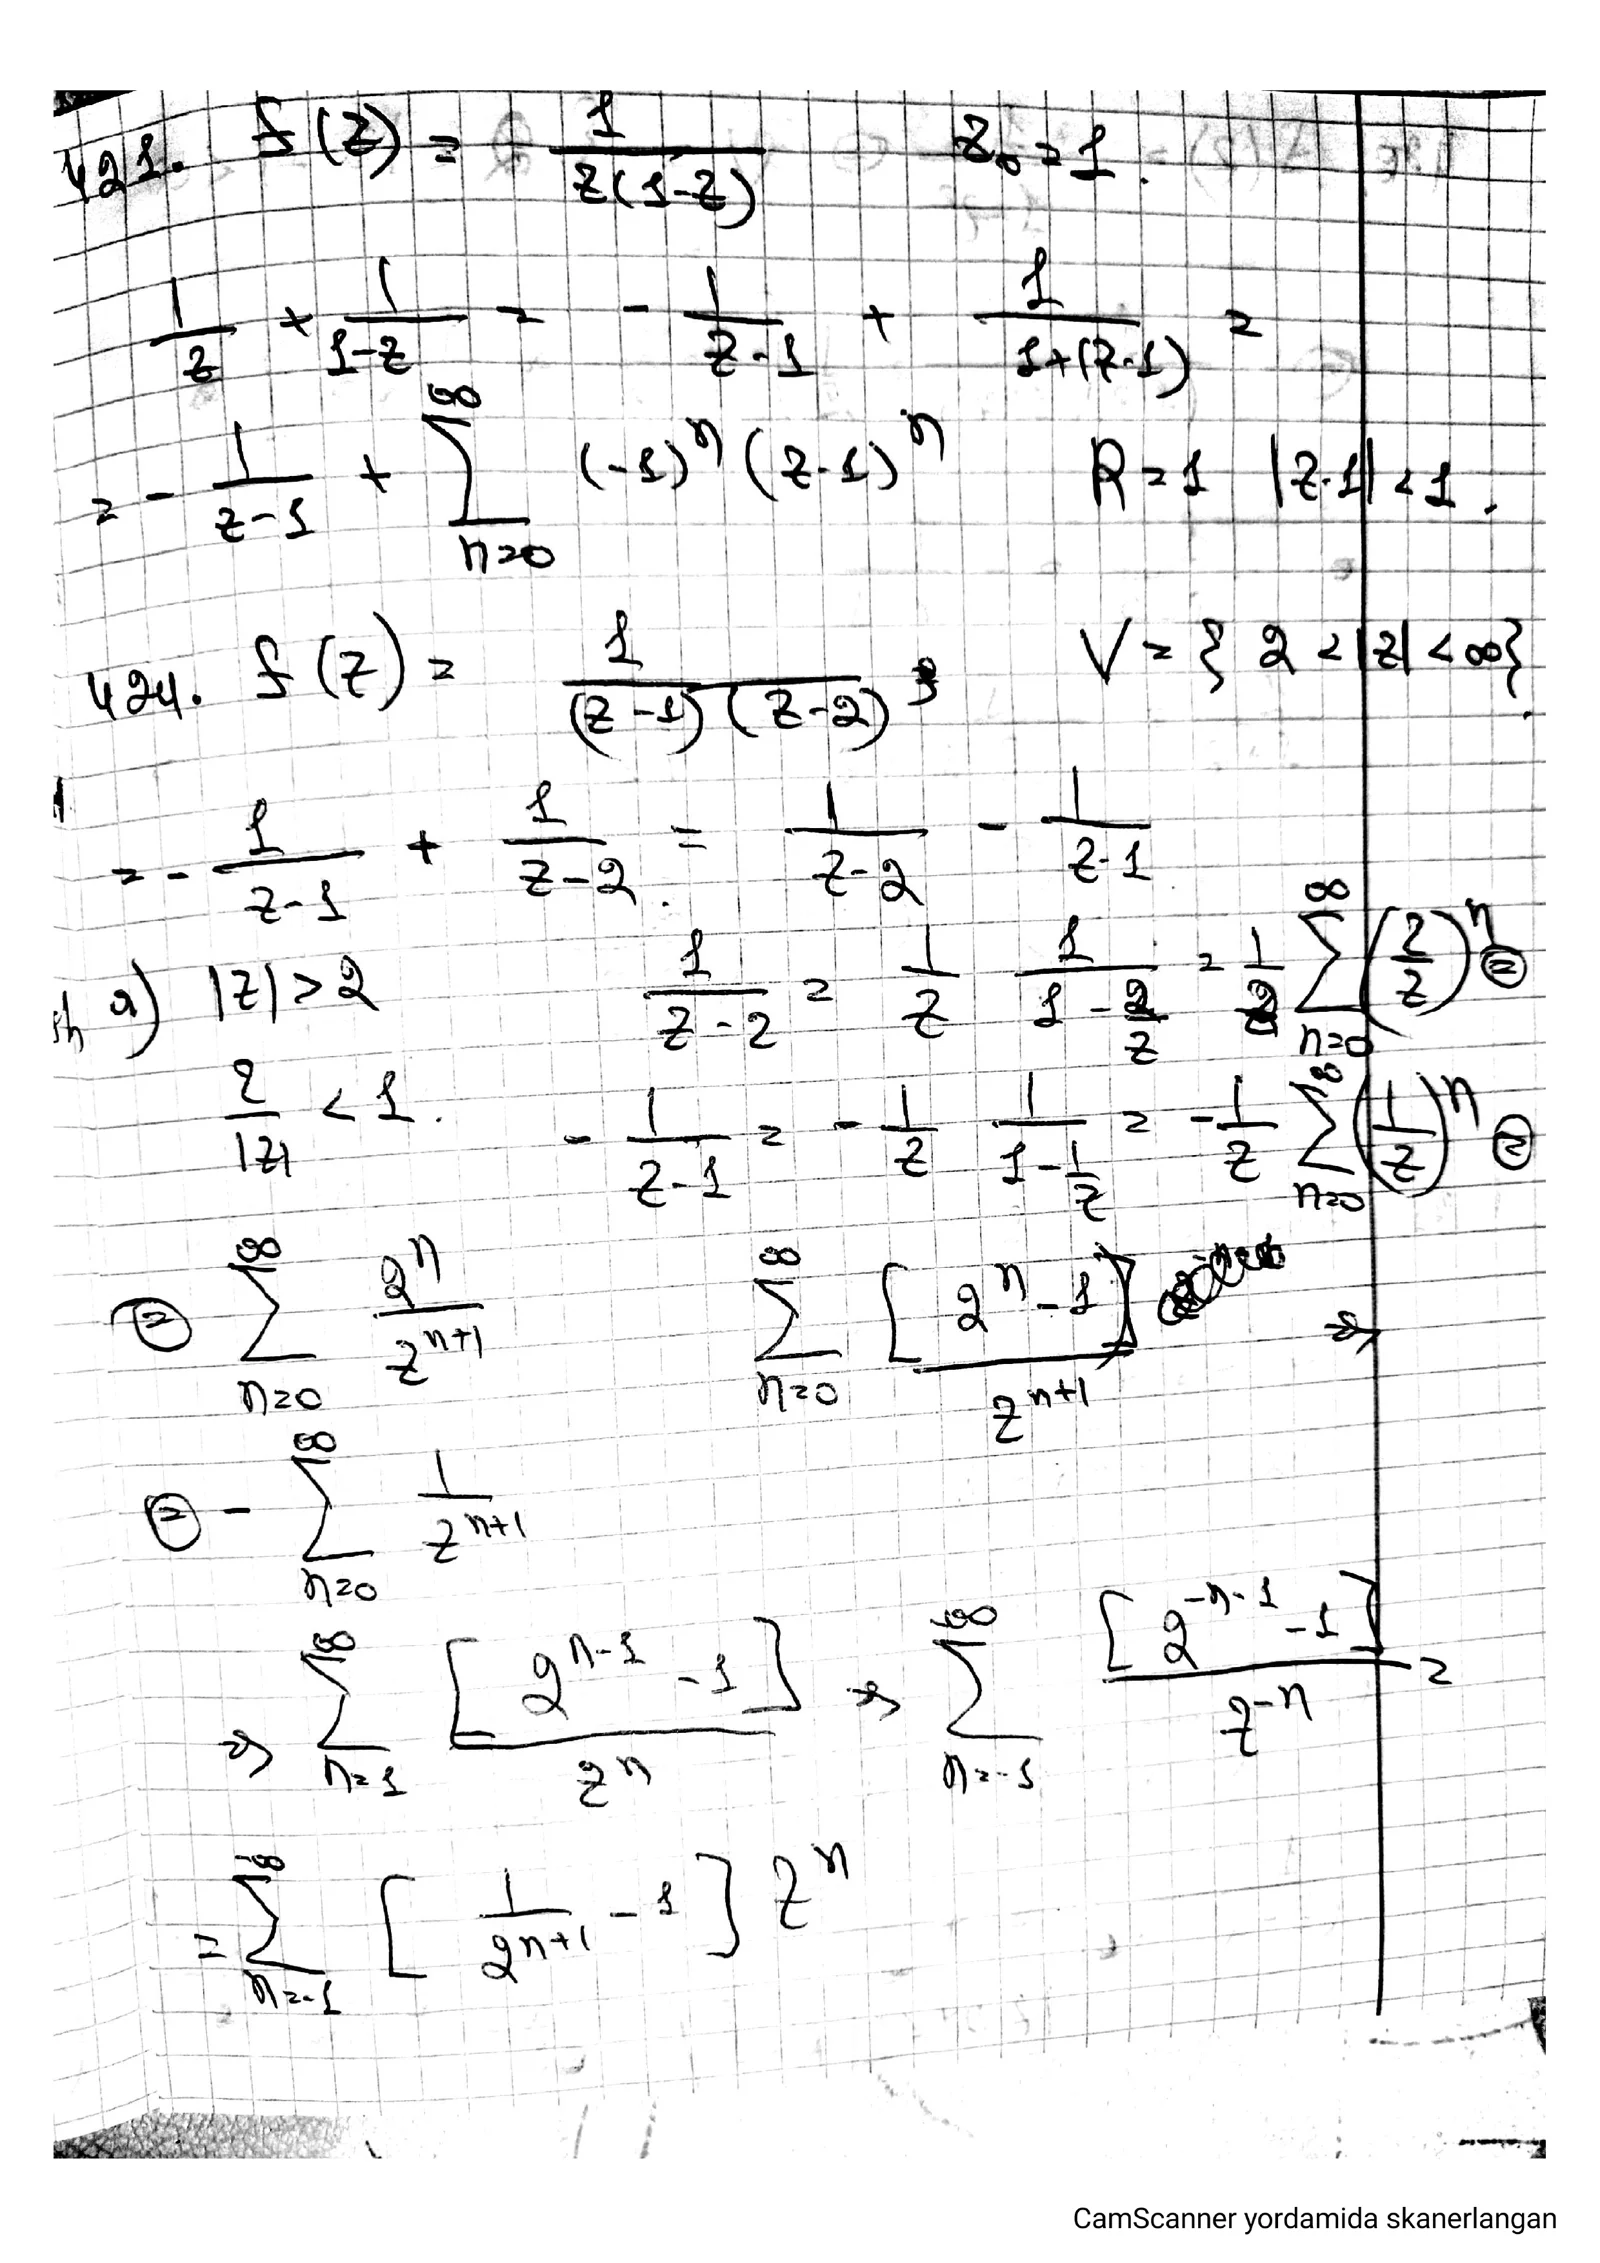 421. f(z) = 1/(z(1-z))   z₀ = 1.
1/z + 1/(1-z) = - 1/(z-1) + 1/(1+(z-1)) =
= - 1/(z-1) + ∑_{n=0}^{∞} (-1)^n (z-1)^n   R = 1   |z-1| < 1.
424. f(z) = 1/((z-1)(z-2)),   V = { 2 < |z| < ∞}.
= - 1/(z-1) + 1/(z-2). = 1/(z-2) - 1/(z-1)
a) |z| > 2   1/(z-2) = 1/z 1/(1-2/z) = 1/z ∑_{n=0}^{∞} (2/z)^n ⊜
2/|z| < 1.   - 1/(z-1) = - 1/z 1/(1-1/z) = - 1/z ∑_{n=0}^{∞} (1/z)^n ⊜
⊜ ∑_{n=0}^{∞} 2^n/z^{n+1}   ∑_{n=0}^{∞} [2^n - 1]/z^{n+1} ⇒
⊜ - ∑_{n=0}^{∞} 1/z^{n+1}
⇒ ∑_{n=1}^{∞} [2^{n-1} - 1]/z^n ⇒ ∑_{n=-1}^{-∞} [2^{-n-1} - 1]/z^{-n} =
= ∑_{n=-1}^{-∞} [1/2^{n+1} - 1] z^n
CamScanner yordamida skanerlangan